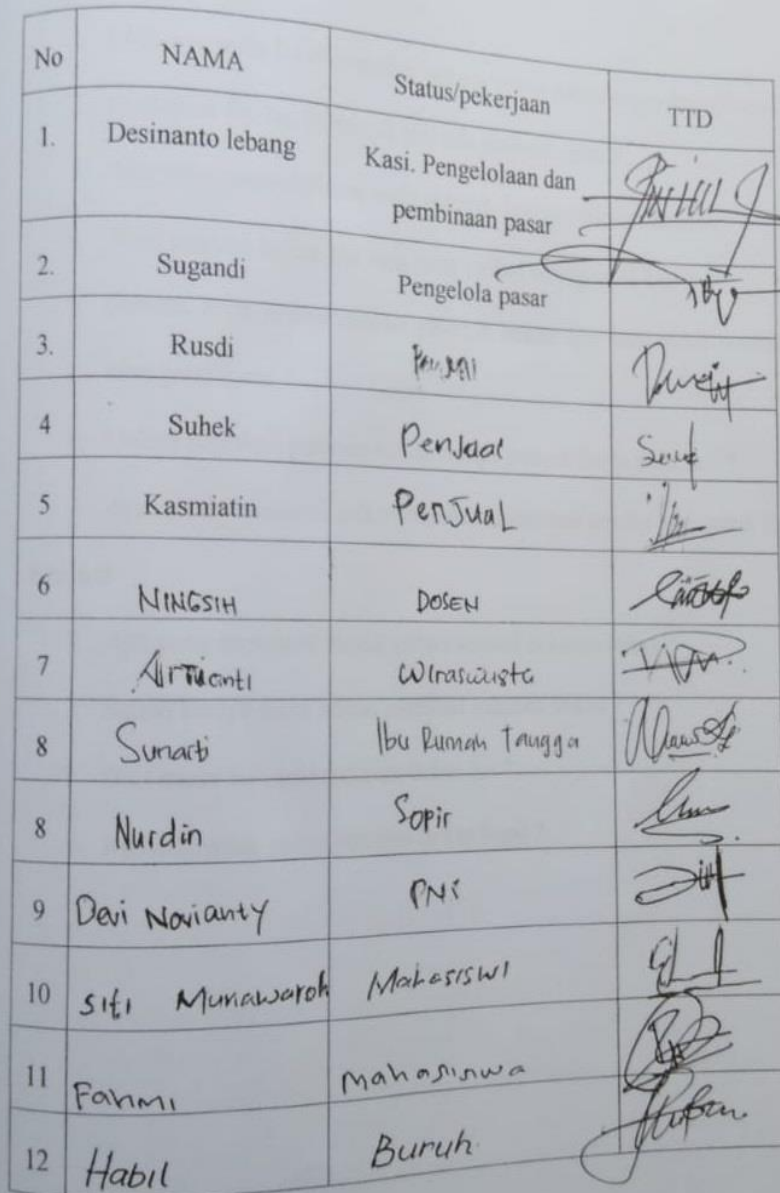 No NAMA Status/pekerjaan TTD
1. Desinanto lebang Kasi. Pengelolaan dan
pembinaan pasar
2. Sugandi Pengelola pasar
3. Rusdi
4 Suhek Penjual
5 Kasmiatin PenJuaL
6 NINGSIH DOSEN
7 Wiraswasta
8 Sunarti Ibu Rumah Tangga
8 Nurdin Sopir
9 Devi Novianty
10 Siti Munawaroh Mahasiswi
11 Fahmi mahasiswa
12 Habil Buruh